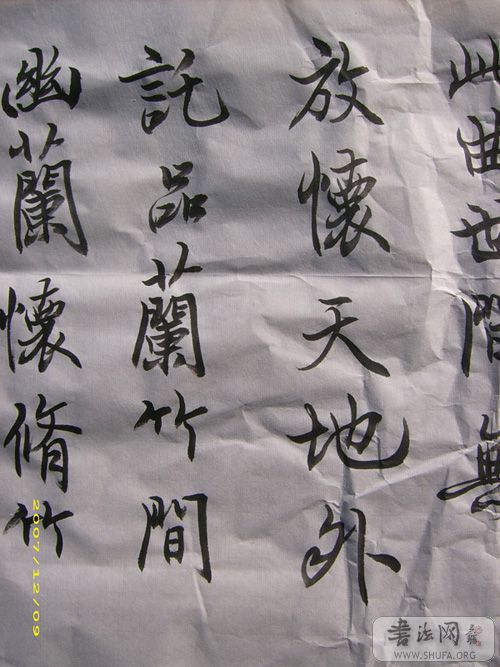 此曲世間無
放懷天地外
託品蘭竹間
幽蘭懷脩竹
2007/12/09
书法网
WWW.SHUFA.ORG